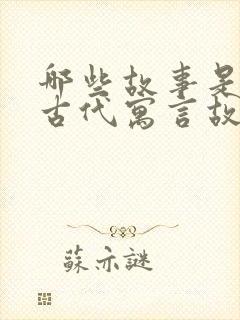 那些故事是
古代寓言故
蘇亦謎